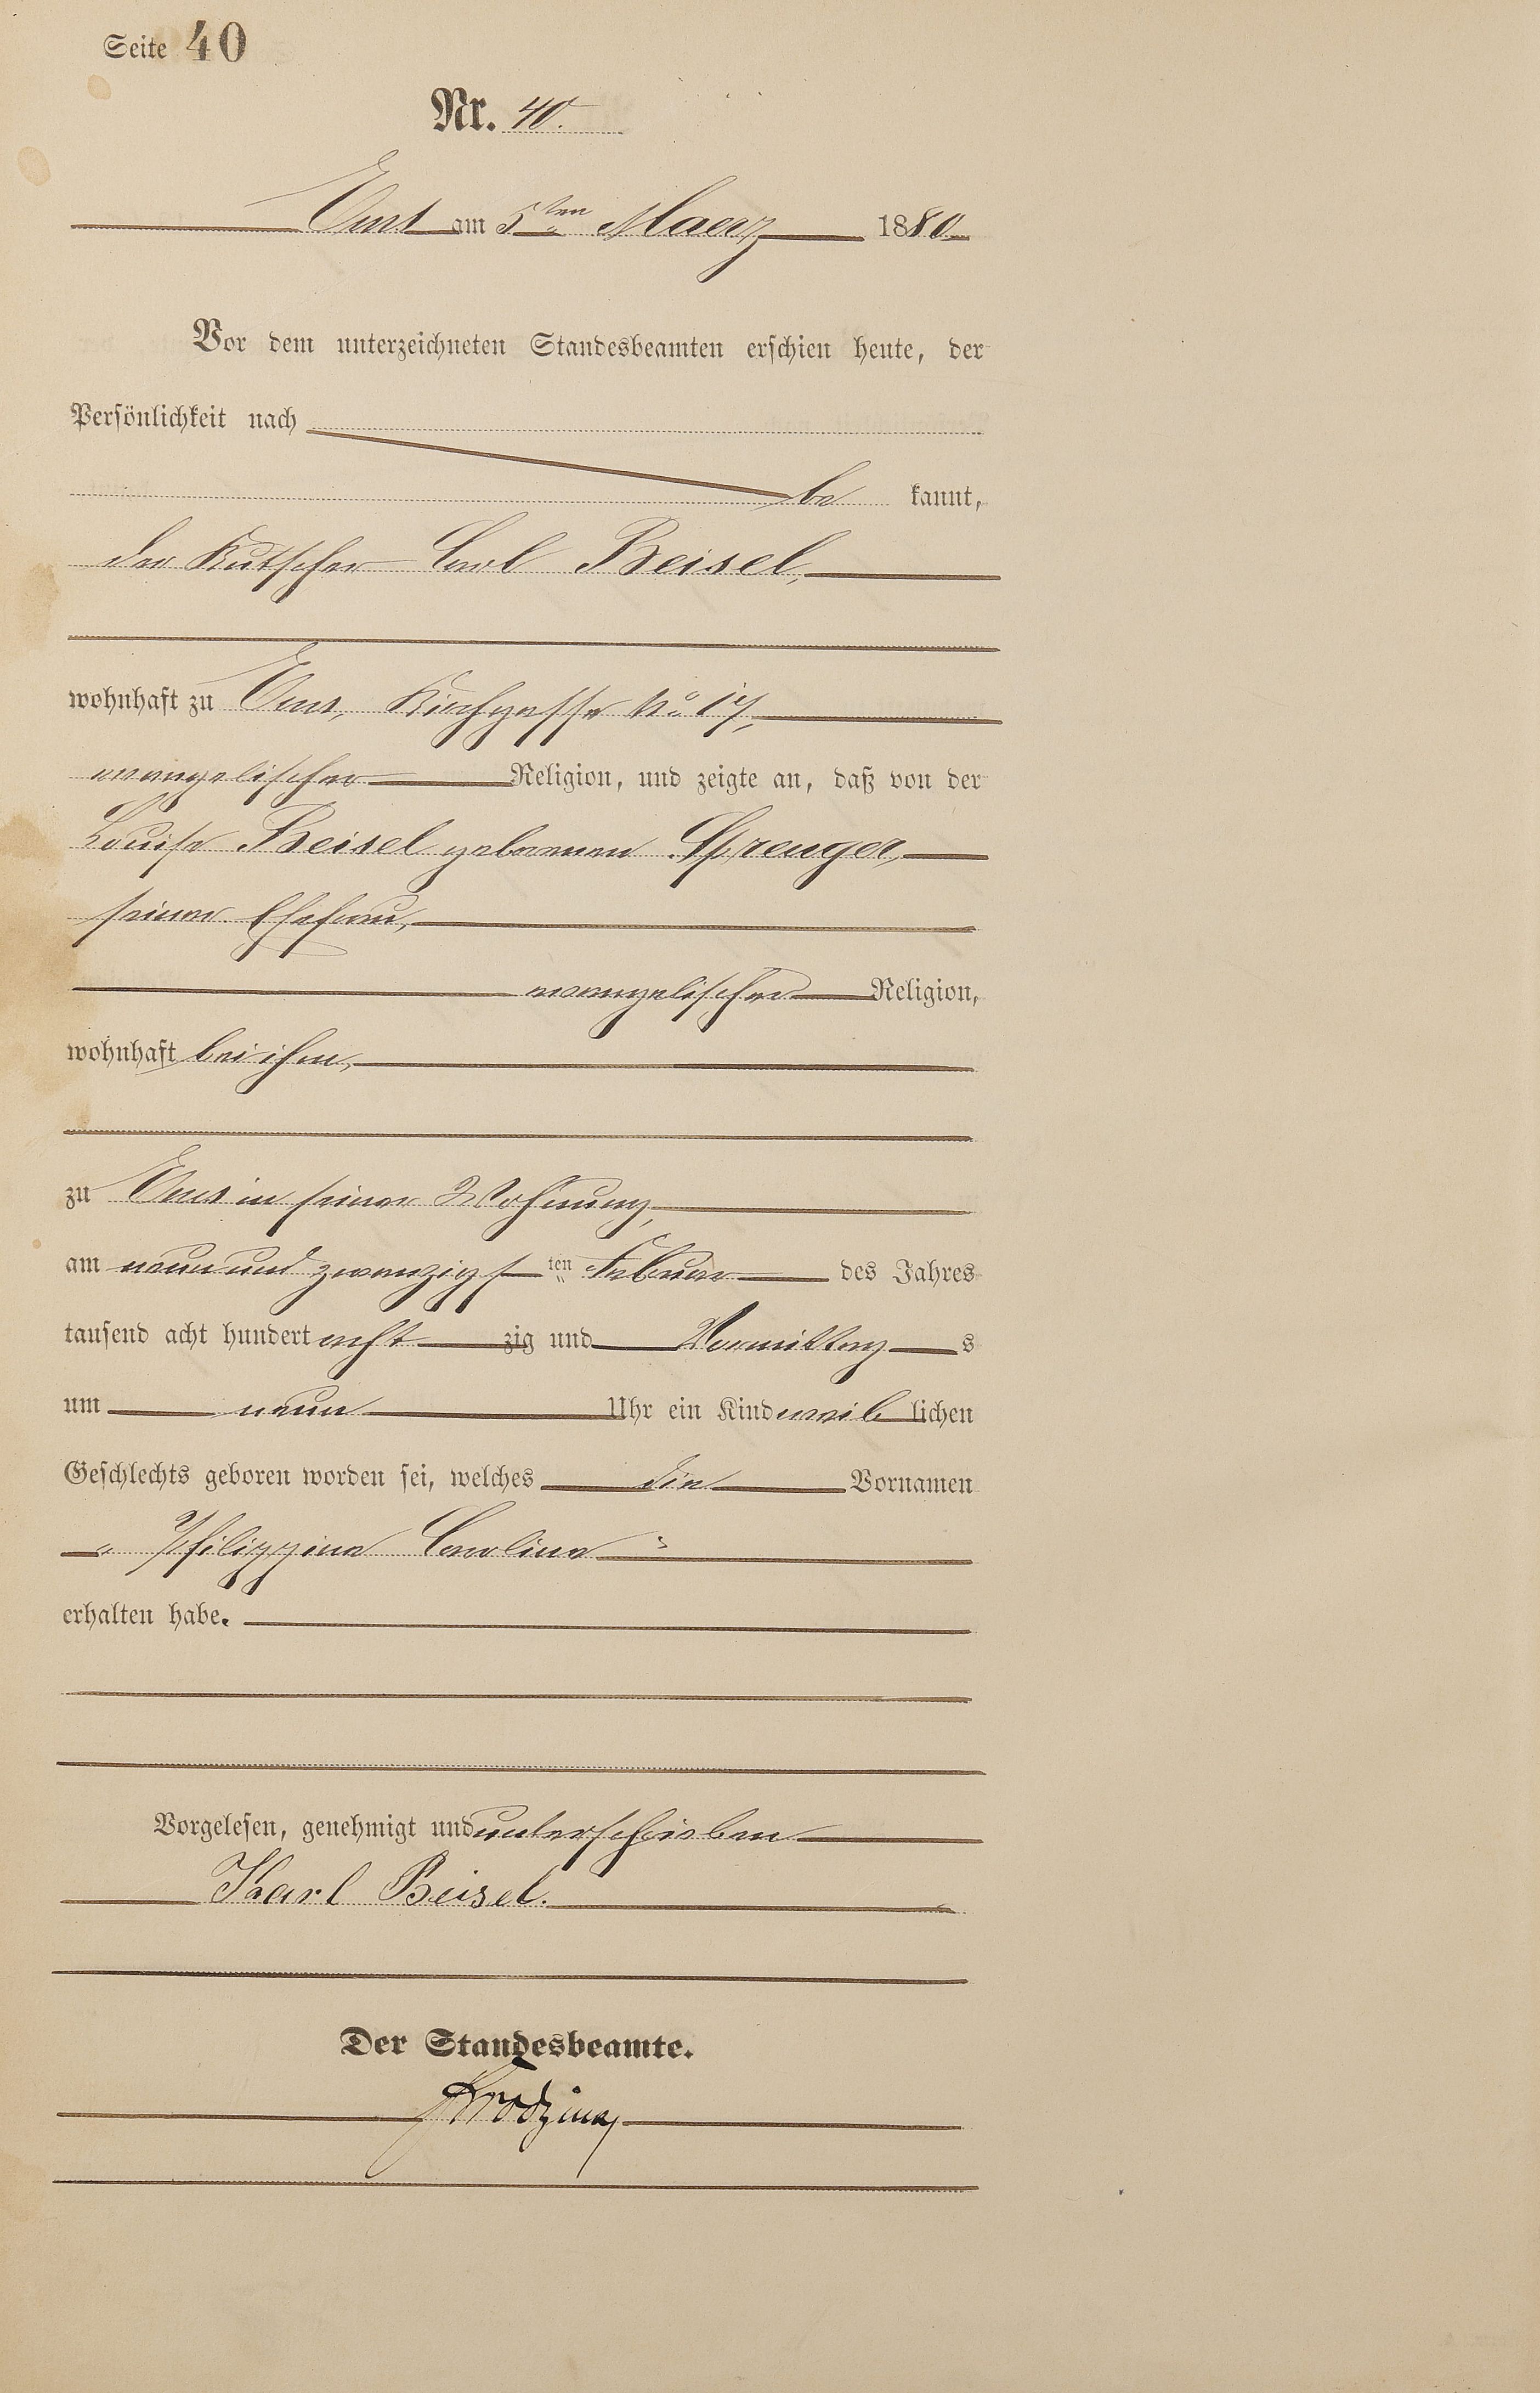 Seite 40
Nr. 40.
Ems am 5ten Maerz 1880
Vor dem unterzeichneten Standesbeamten erschien heute, der
Persönlichkeit nach
be kannt,
der Kutscher Carl Beisel,
wohnhaft zu Ems, Kirchgasse No 17,
evangelischer Religion, und zeigte an, daß von der
Louise Beisel geborenen Sprenger,
seiner Ehefrau,
evangelischer Religion,
wohnhaft bei ihm,
zu Ems in seiner Wohnung,
am neun und zwanzigsten Februar des Jahres
tausend acht hundert achtzig und Vormittags
um neun Uhr ein Kind weiblichen
Geschlechts geboren worden sei, welches die Vornamen
„Philippina Carolina“
erhalten habe.
Vorgelesen, genehmigt und unterschrieben
Karl Beisel.
Der Standesbeamte.